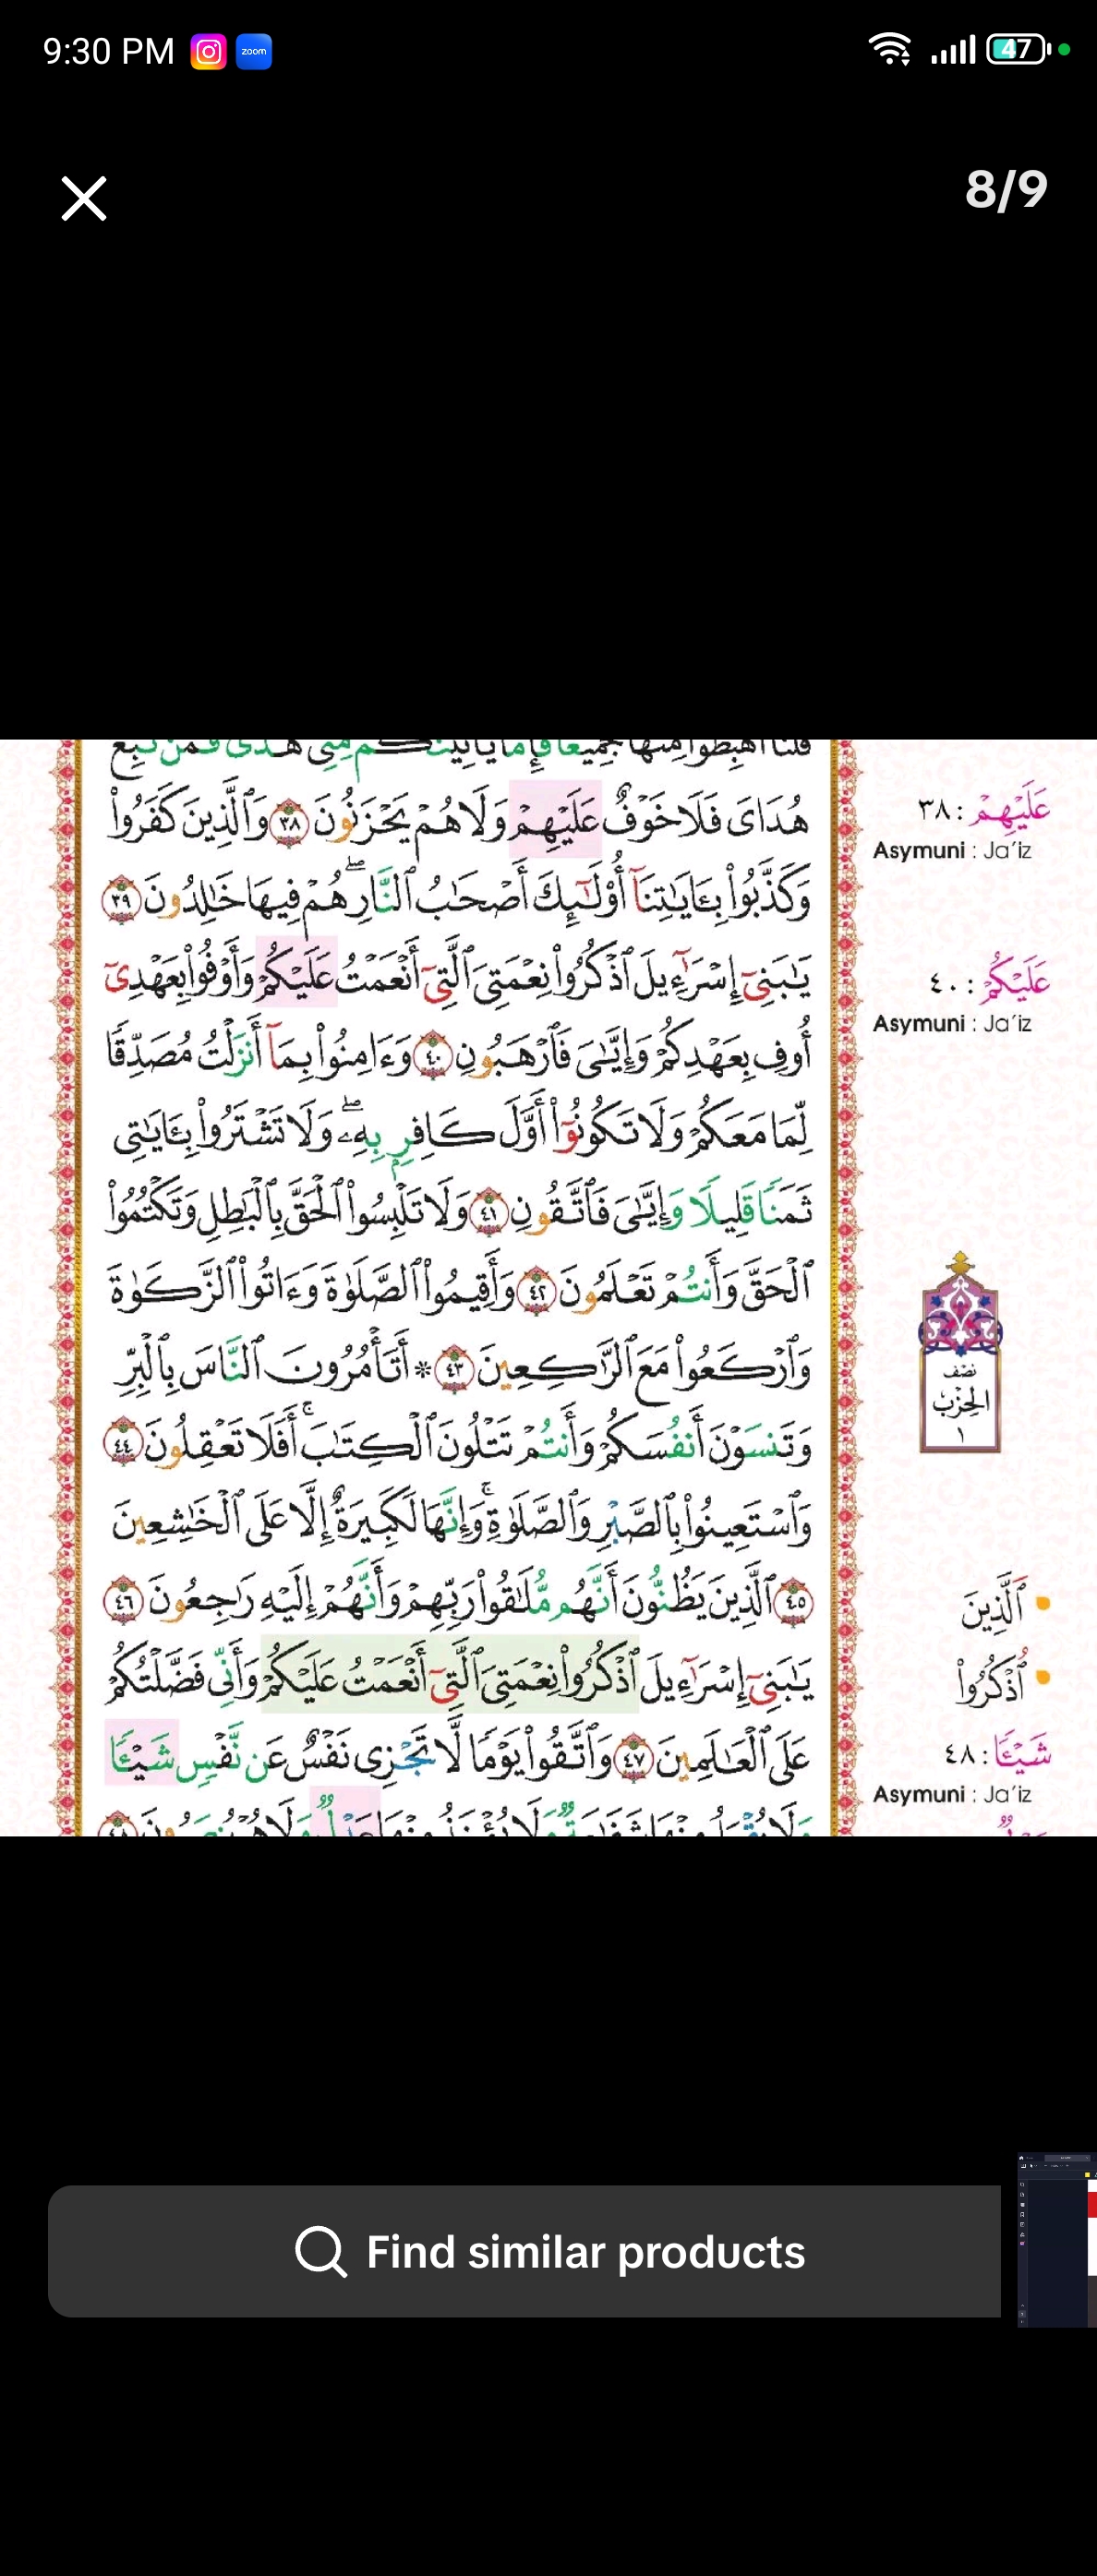 9:30 PM
zoom
47
8/9
هُدَايَ فَلَا خَوْفٌ عَلَيْهِمْ وَلَا هُمْ يَحْزَنُونَ ٣٨ وَٱلَّذِينَ كَفَرُوا۟
وَكَذَّبُوا۟ بِـَٔايَـٰتِنَآ أُو۟لَـٰٓئِكَ أَصْحَـٰبُ ٱلنَّارِ ۖ هُمْ فِيهَا خَـٰلِدُونَ ٣٩
يَـٰبَنِىٓ إِسْرَٰٓءِيلَ ٱذْكُرُوا۟ نِعْمَتِىَ ٱلَّتِىٓ أَنْعَمْتُ عَلَيْكُمْ وَأَوْفُوا۟ بِعَهْدِىٓ
أُوفِ بِعَهْدِكُمْ وَإِيَّـٰىَ فَٱرْهَبُونِ ٤٠ وَءَامِنُوا۟ بِمَآ أَنزَلْتُ مُصَدِّقًا
لِّمَا مَعَكُمْ وَلَا تَكُونُوٓا۟ أَوَّلَ كَافِرٍۭ بِهِۦ ۖ وَلَا تَشْتَرُوا۟ بِـَٔايَـٰتِى
ثَمَنًا قَلِيلًا وَإِيَّـٰىَ فَٱتَّقُونِ ٤١ وَلَا تَلْبِسُوا۟ ٱلْحَقَّ بِٱلْبَـٰطِلِ وَتَكْتُمُوا۟
ٱلْحَقَّ وَأَنتُمْ تَعْلَمُونَ ٤٢ وَأَقِيمُوا۟ ٱلصَّلَوٰةَ وَءَاتُوا۟ ٱلزَّكَوٰةَ
وَٱرْكَعُوا۟ مَعَ ٱلرَّٰكِعِينَ ٤٣ * أَتَأْمُرُونَ ٱلنَّاسَ بِٱلْبِرِّ
وَتَنسَوْنَ أَنفُسَكُمْ وَأَنتُمْ تَتْلُونَ ٱلْكِتَـٰبَ ۚ أَفَلَا تَعْقِلُونَ ٤٤
وَٱسْتَعِينُوا۟ بِٱلصَّبْرِ وَٱلصَّلَوٰةِ ۚ وَإِنَّهَا لَكَبِيرَةٌ إِلَّا عَلَى ٱلْخَـٰشِعِينَ
٤٥ ٱلَّذِينَ يَظُنُّونَ أَنَّهُم مُّلَـٰقُوا۟ رَبِّهِمْ وَأَنَّهُمْ إِلَيْهِ رَٰجِعُونَ ٤٦
يَـٰبَنِىٓ إِسْرَٰٓءِيلَ ٱذْكُرُوا۟ نِعْمَتِىَ ٱلَّتِىٓ أَنْعَمْتُ عَلَيْكُمْ وَأَنِّى فَضَّلْتُكُمْ
عَلَى ٱلْعَـٰلَمِينَ ٤٧ وَٱتَّقُوا۟ يَوْمًا لَّا تَجْزِى نَفْسٌ عَن نَّفْسٍ شَيْـًٔا
عَلَيْهِمْ : ٣٨
Asymuni : Ja'iz
عَلَيْكُمْ : ٤٠
Asymuni : Ja'iz
نصف
الحزب
١
ٱلَّذِينَ
ٱذْكُرُوا۟
شَيْـًٔا : ٤٨
Asymuni : Ja'iz
Find similar products